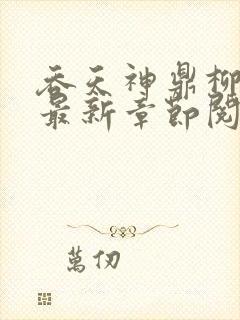 吞天神鼎柳
最新章節閱
萬仞